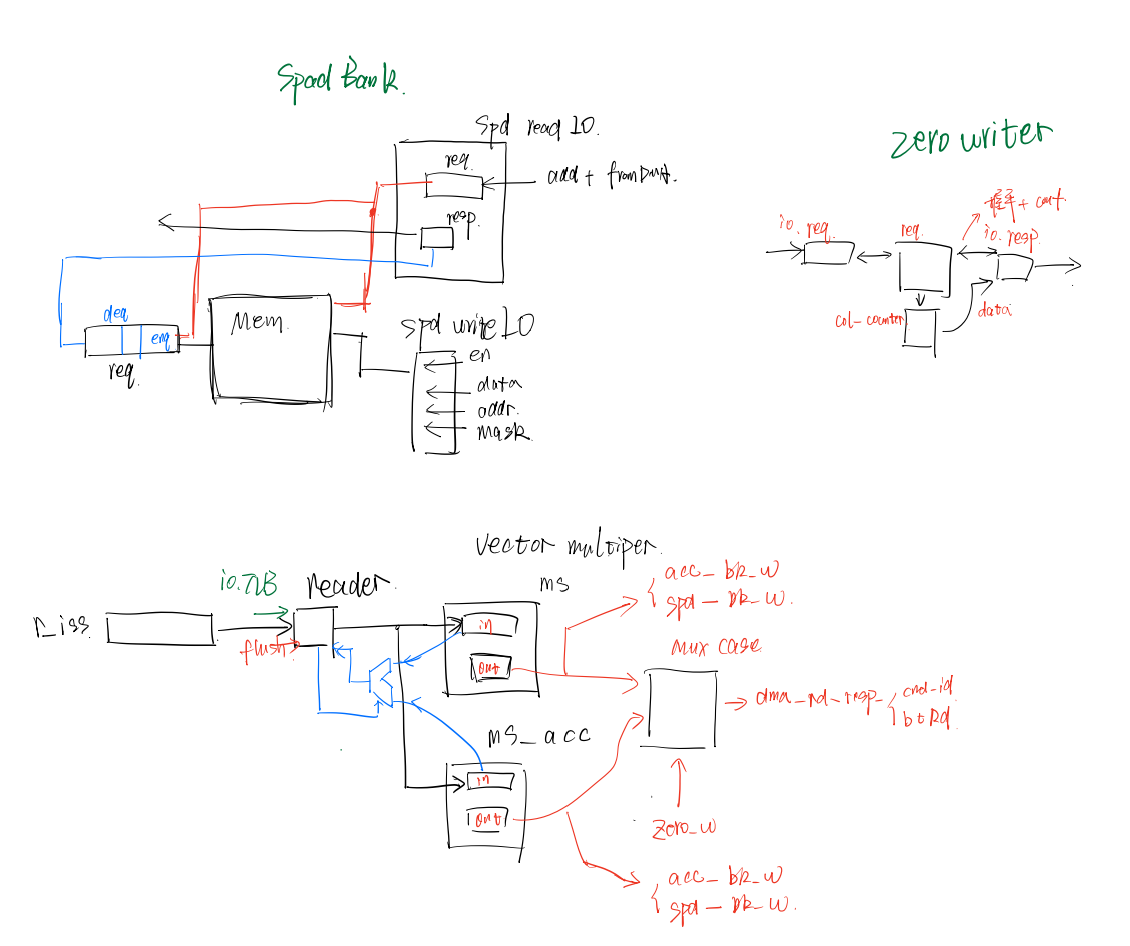 Spad Bank.
Spd read IO.
req.
add + fromDMA.
resp.
deq
enq
req.
Mem.
spd write IO
en
data
addr.
mask
zero writer
io. req.
req.
+ cat.
io. resp.
col-counter
data
vector multiper.
io.TLB
reader.
flush
ms
in
out
acc_bk_w
spd_bk_w.
mux case
dma_rd_resp_
cmd-id
btRd
ms_acc
in
out
zero_w
acc_bk_w
spd_bk_w.